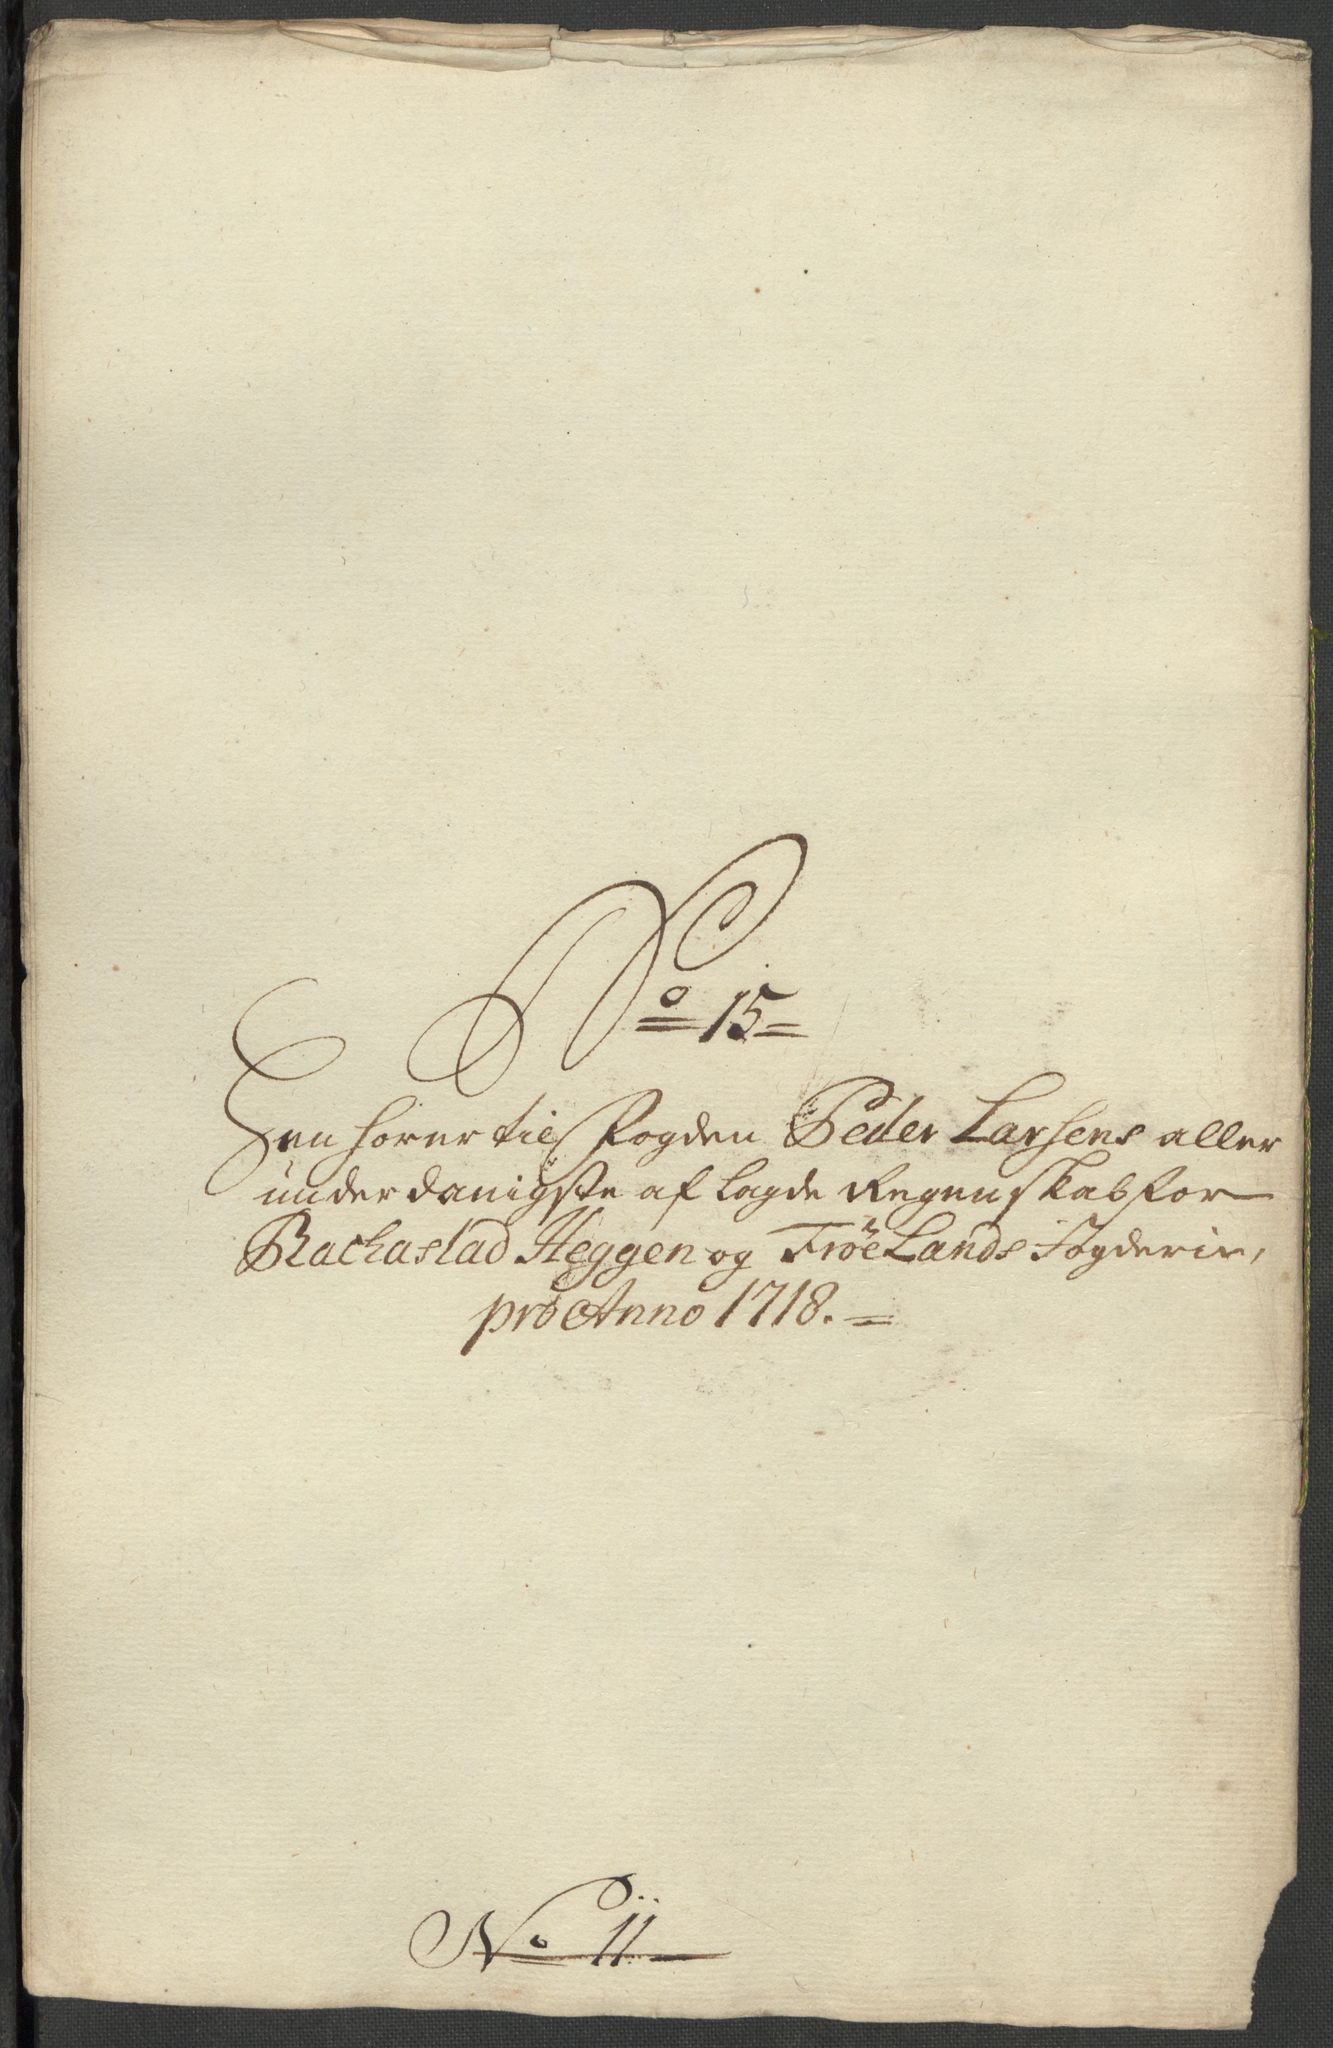 No 15
Henhörer til Fogden Peder Larsens aller
underdanigste aflagde Regenskab for
Rachastad Heggen og Fröelands Fogderie,
pro Anno 1718.
No 11